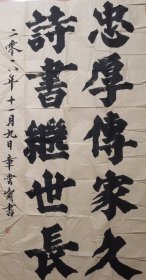 忠厚傳家久
詩書繼世長
二零一八年十一月九日章雲甯書